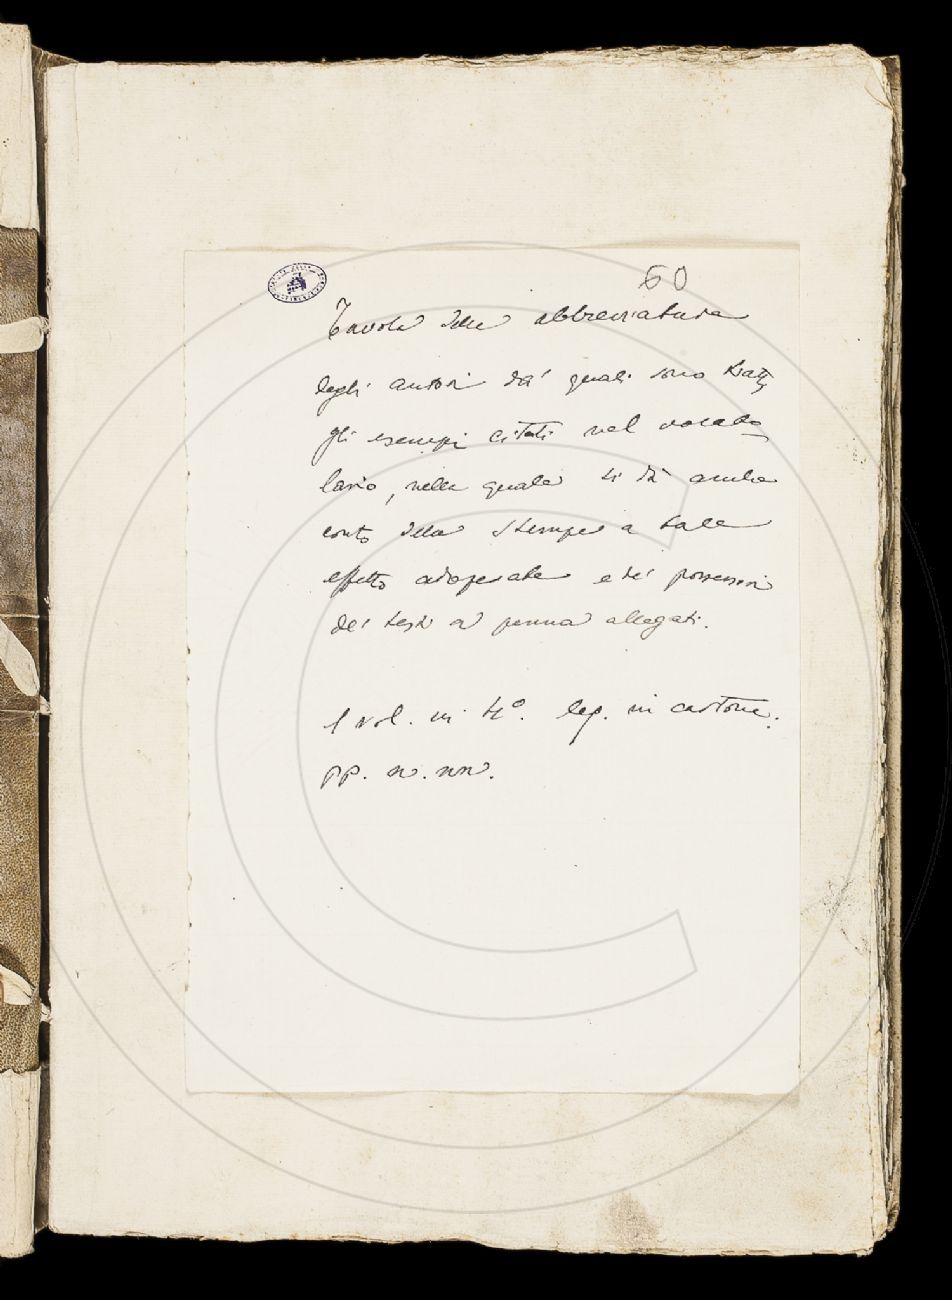 60
Tavola delle abbreviature
degli autori da' quali sono tratti
gli esempi citati nel vocabo
lario, nella quale si dà anche
conto della stampe a tale
effetto adoperate e de' possessori
dei testi a penna allegati.
1 vol. in 4°. leg. in cartone.
pp. n. nn.